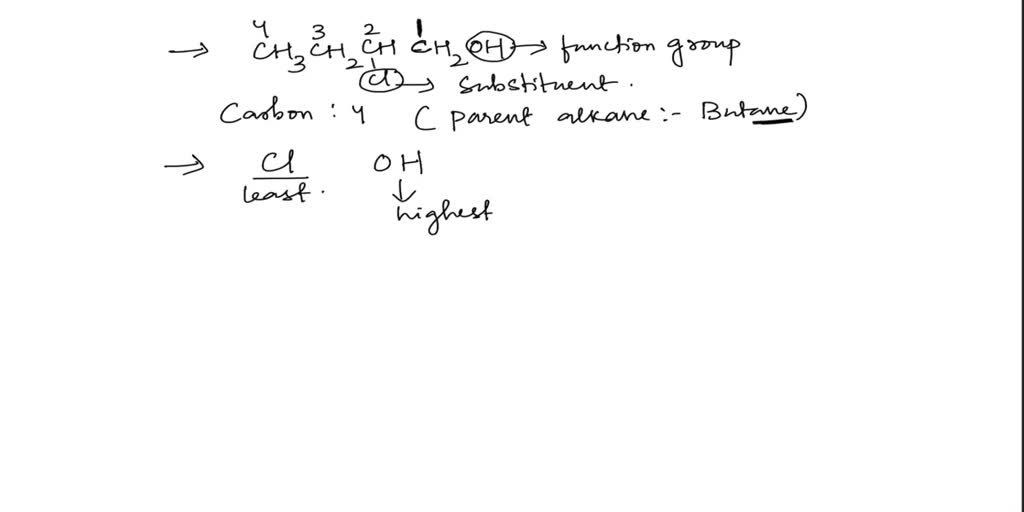 4 3 2 1
→ CH3 CH2 CH CH2 OH → function group
Cl → substituent.
Carbon : 4 ( parent alkane :- Butane)
→ Cl OH
least. ↓
highest